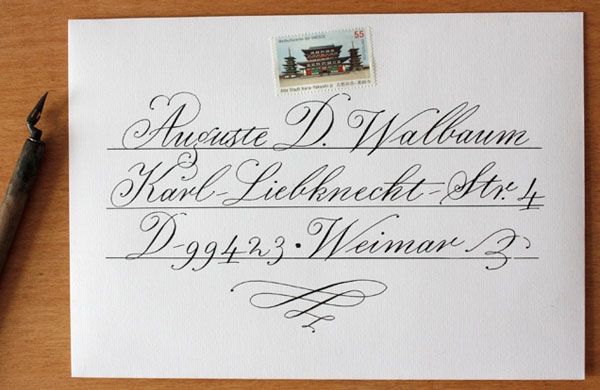 Weltkulturerbe der UNESCO
55
Alte Stadt Nara - Yakushi-ji
Auguste D. Walbaum
Karl-Liebknecht-Str. 4
D-99423 • Weimar